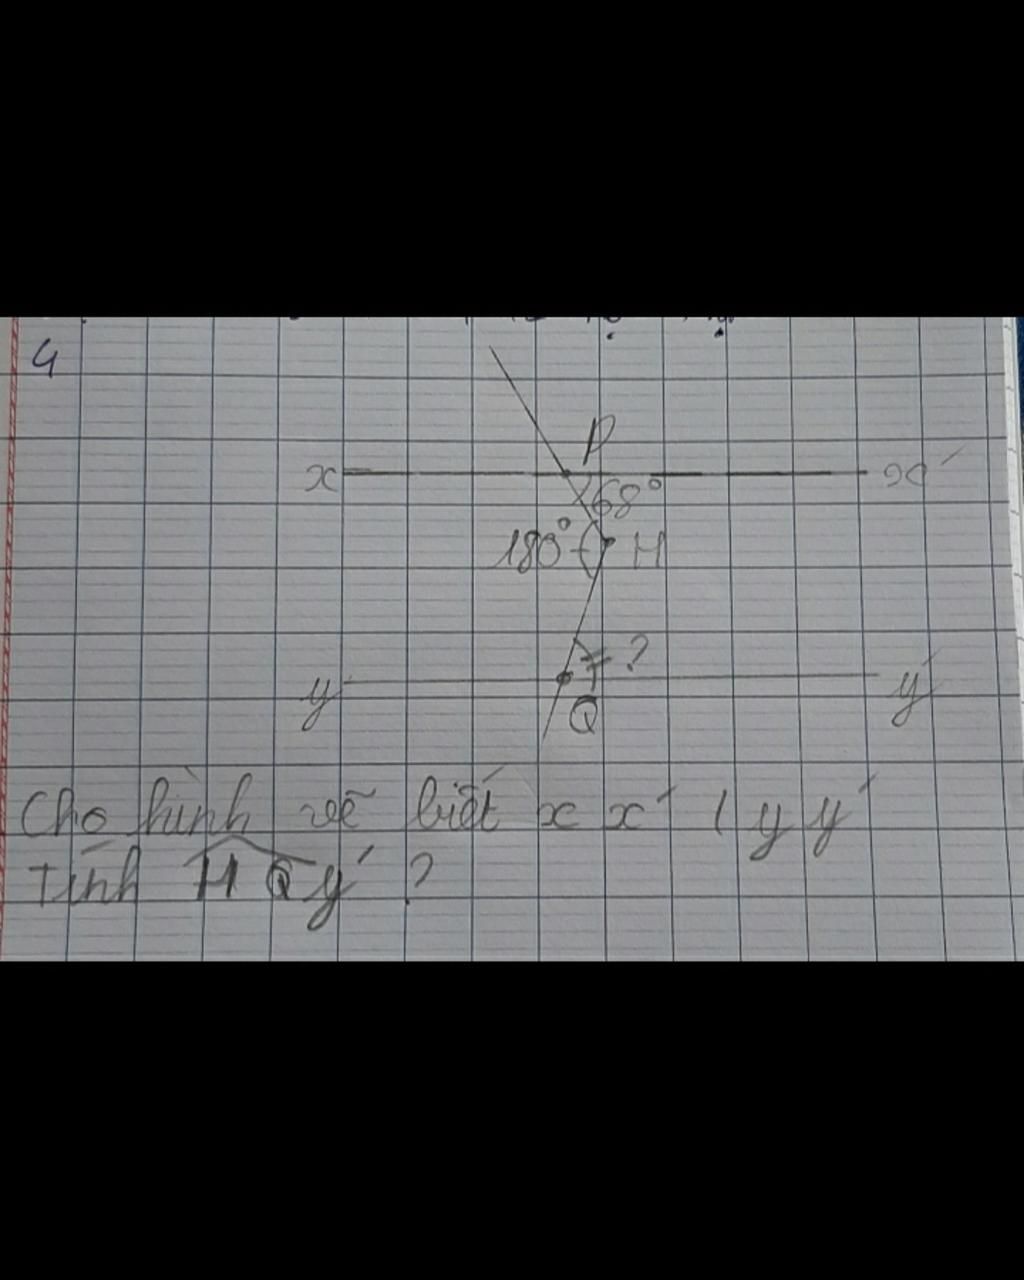 4
P
x x'
68°
180° H
?
y y'
Q
Cho hình vẽ biết x x' / y y'
Tính HQy' ?